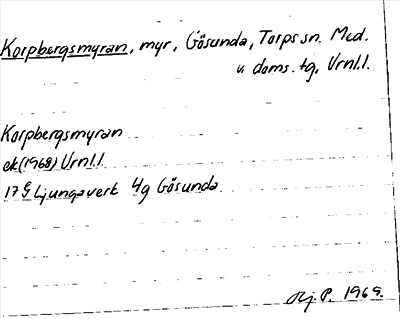 Korpbergsmyran, myr, Gösunda, Torps sn. Med.
v. doms. tg, Vrnl.l.
Korpbergsmyran
ek(1968) Vrnl.l
17 G Ljungaverk 4g Gösunda
P. 1969.